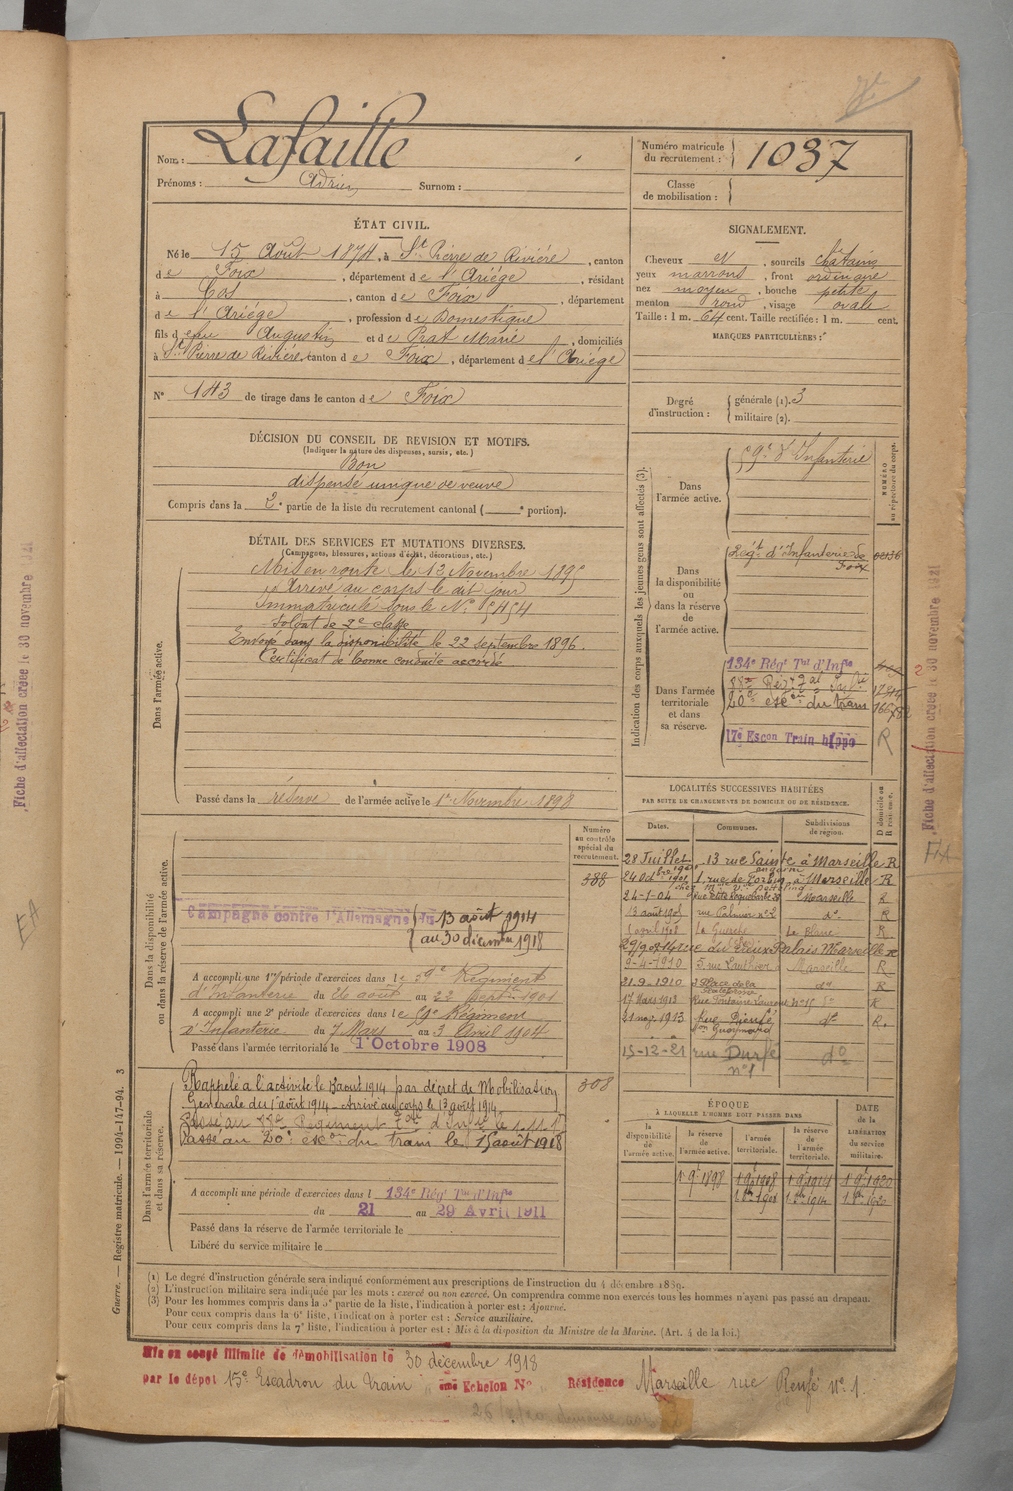 Lafaille
Nom :
Prénoms : Adrien Surnom :
Numéro matricule du recrutement : 1037
Classe de mobilisation :
ÉTAT CIVIL.
Né le 15 Août 1874, à St Pierre de Rivière, canton
de Foix, département de l'Ariége, résidant
à Cos, canton de Foix, département
de l'Ariége, profession de Domestique
fils de feu Augustin et de Prat Marie, domiciliés
à St Pierre de Rivière, canton de Foix, département de l'Ariége
N° 143 de tirage dans le canton de Foix
SIGNALEMENT.
Cheveux N, sourcils châtains
yeux marrons, front ordinaire
nez moyen, bouche petite
menton rond, visage ovale
Taille : 1 m. 64 cent. Taille rectifiée : 1 m. cent.
MARQUES PARTICULIÈRES :
Degré d'instruction : générale (1). 3
militaire (2).
DÉCISION DU CONSEIL DE REVISION ET MOTIFS.
(Indiquer la nature des dispenses, sursis, etc.)
Bon
dispensé unique de veuve
Compris dans la 2e partie de la liste du recrutement cantonal ( e portion).
DÉTAIL DES SERVICES ET MUTATIONS DIVERSES.
(Campagnes, blessures, actions d'éclat, décorations, etc.)
Dans l'armée active.
Mis en route le 13 Novembre 1895
Arrivé au corps le dit jour
Immatriculé sous le N° 5454
Soldat de 2e classe
Envoyé dans la disponibilité le 22 septembre 1896.
Certificat de bonne conduite accordé
Passé dans la réserve de l'armée active le 1er Novembre 1898
Indication des corps auxquels les jeunes gens sont affectés (3).
NUMÉRO au répertoire du corps.
Dans l'armée active.
59e d'Infanterie
Dans la disponibilité ou dans la réserve de l'armée active.
Régt d'Infanterie de Foix
Dans l'armée territoriale et dans sa réserve.
134e Régt Tal d'Infie
20e escon du train
17e Escon Train hippo
R
LOCALITÉS SUCCESSIVES HABITÉES
PAR SUITE DE CHANGEMENTS DE DOMICILE OU DE RÉSIDENCE.
Dates. Communes. Subdivisions de région. D domicile ou R résidence.
28 Juillet 13 rue Sainte à Marseille R
24 Octbre 1901 1, rue de à Marseille R
24-1-04 Marseille R
13 août 1905 rue n° 2 do R
Le Blanc R
rue du Vieux Palais Marseille R
9-4-1910 5, rue Marseille R
21-9-1910 2 Place de la do R
17 Mars 1913 Rue Fontaine n° 15 R
21 mai 1913 do R.
15-12-21 rue Durfé n° 1 do
Numéro au contrôle spécial du recrutement.
388
Dans la disponibilité ou dans la réserve de l'armée active.
Campagne contre l'Allemagne du 13 août 1914
au 30 décembre 1918
A accompli une 1re période d'exercices dans le 59e Régiment
d'Infanterie du 26 août au 22 Septbre 1901
A accompli une 2e période d'exercices dans le 59e Régiment
d'Infanterie du 7 Mars au 3 Avril 1904
Passé dans l'armée territoriale le 1 Octobre 1908
Dans l'armée territoriale et dans sa réserve.
308
Rappelé à l'activité le août 1914 par décret de Mobilisation
Générale du 1er août 1914 - Arrivé au corps le 13 août 1914
Passé au 20e escon du train le 15 août 1918
A accompli une période d'exercices dans l 134e Régt Tal d'Infie
du 21 au 29 Avril 1911
Passé dans la réserve de l'armée territoriale le
Libéré du service militaire le
ÉPOQUE
À LAQUELLE L'HOMME DOIT PASSER DANS
DATE de la LIBÉRATION du service militaire.
la disponibilité de l'armée active. la réserve de l'armée active. l'armée territoriale. la réserve de l'armée territoriale.
1 9e 1898 1 9e 1908 1 9e 1914 1 9e 1920
(1) Le degré d'instruction générale sera indiqué conformément aux prescriptions de l'instruction du 4 décembre 1889.
(2) L'instruction militaire sera indiquée par les mots : exercé ou non exercé. On comprendra comme non exercés tous les hommes n'ayant pas passé au drapeau.
(3) Pour les hommes compris dans la 5e partie de la liste, l'indication à porter est : Ajourné.
Pour ceux compris dans la 6e liste, l'indication à porter est : Service auxiliaire.
Pour ceux compris dans la 7e liste, l'indication à porter est : Mis à la disposition du Ministre de la Marine. (Art. 4 de la loi.)
Guerre. — Registre matricule. — 1994-147-94. 3
Mis en congé illimité de démobilisation le 30 décembre 1918
par le dépôt 15e Escadron du Train ème Echelon N° Résidence Marseille rue n° 1.
Fiche d'affectation créée le 30 novembre 1921
Fiche d'affectation créée le 30 novembre 1921
EA